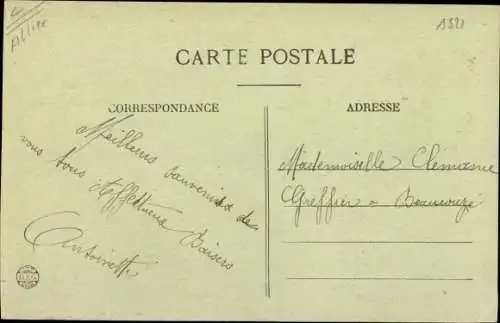 Allier
1521
CARTE POSTALE
CORRESPONDANCE
ADRESSE
Meilleurs Souvenirs de
vous tous Affectueux Baisers
Antoinette
Mademoiselle Clémence
Greffier a Beaucouzé